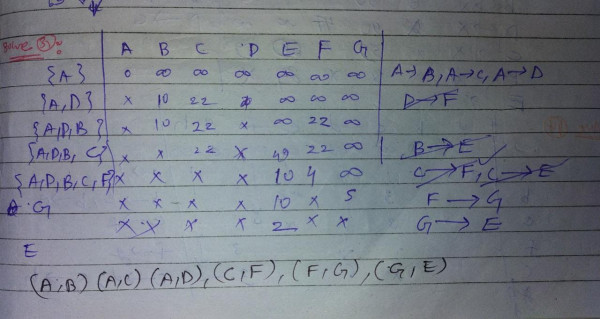 Solve ③:
A B C D E F G
{A} 0 ∞ ∞ ∞ ∞ ∞ ∞ A→B, A→C, A→D
{A,D} x 10 22 ∞ ∞ ∞ D→F
{A,D,B} x 10 22 x ∞ 22 ∞
{A,D,B,C} x x 22 x 49 22 ∞ B→E
{A,D,B,C,F} x x x x 10 4 ∞ C→F, C→E
G x x x x 10 x 5 F→G
x x x x 2 x x G→E
E
(A,B) (A,C) (A,D), (C,F), (F,G), (G,E)